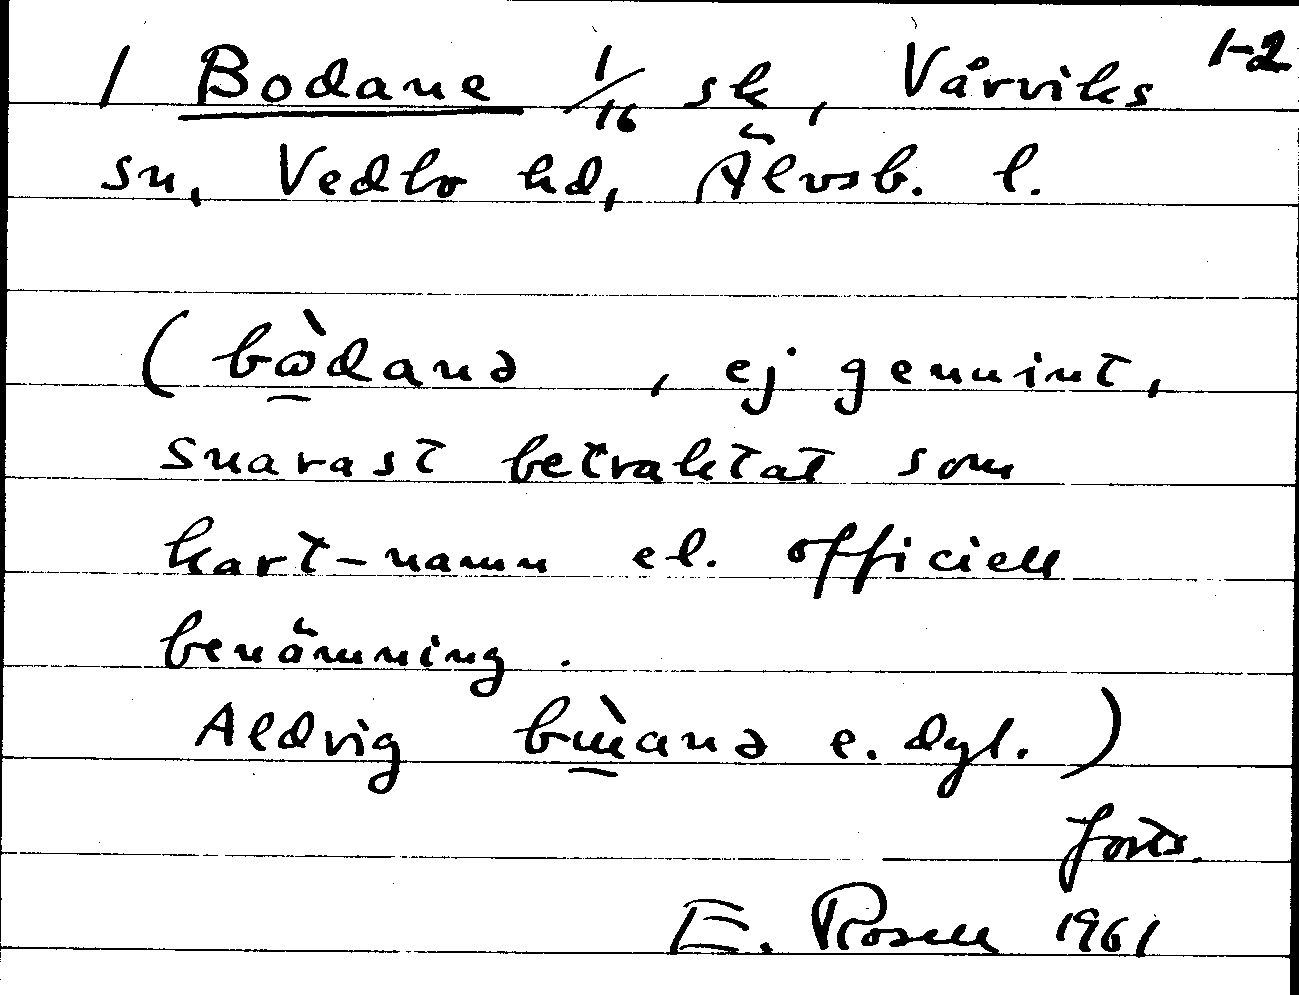 1-2
1 Bodane 1/16 sk, Vårviks
sn, Vedbo hd, Älvsb. l.
(bѡ̀danə, ej genuint,
snarast betraktat som
kart-namn el. officiell
benämning.
Aldrig bɯ̀anə e. dyl.)
forts.
E. Rosell 1961